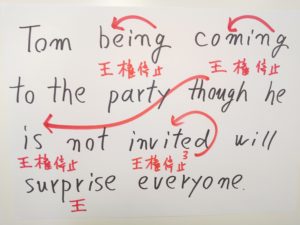 Tom being coming
王権停止 王権停止
to the party though he
is not invited will
王権停止 王権停止 3
surprise everyone.
王